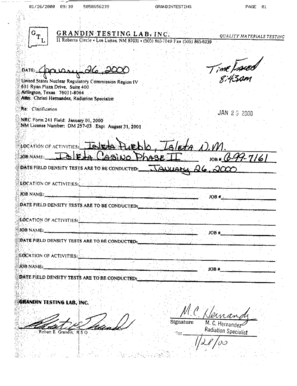 01/26/2000 09:39 5058656239 GRANDINTESTING PAGE 01
G T L
GRANDIN TESTING LAB, INC.
QUALITY MATERIALS TESTING
DATE: January 26, 2000
Time Faxed
8:43am
United States Nuclear Regulatory Commission Region IV
611 Ryan Plaza Drive, Suite 400
Arlington, Texas 76011-8064
Attn: Christi Hernandez, Radiation Specialist
JAN 25 2000
Re: Clarification
NRC Form 241 Field: January 01, 2000
NM License Number: DM 257-03 Exp: August 31, 2001
LOCATION OF ACTIVITIES: Isleta Pueblo, Isleta N.M.
JOB NAME: Isleta Casino Phase II JOB # G-99-7161
DATE FIELD DENSITY TESTS ARE TO BE CONDUCTED: January 26, 2000
LOCATION OF ACTIVITIES:
JOB NAME: JOB #
DATE FIELD DENSITY TESTS ARE TO BE CONDUCTED:
LOCATION OF ACTIVITIES:
JOB NAME: JOB #
DATE FIELD DENSITY TESTS ARE TO BE CONDUCTED:
LOCATION OF ACTIVITIES:
JOB NAME: JOB #
DATE FIELD DENSITY TESTS ARE TO BE CONDUCTED:
GRANDIN TESTING LAB, INC.
M.C. Hernandez
Signature M. C. Hernandez
Radiation Specialist
1/28/00